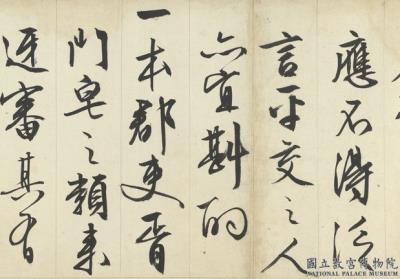 應不得泛
言平交之人
亦宜斟酌
一本郡吏胥
門皂之類來
逕審其有
國立故宮博物院
NATIONAL PALACE MUSEUM